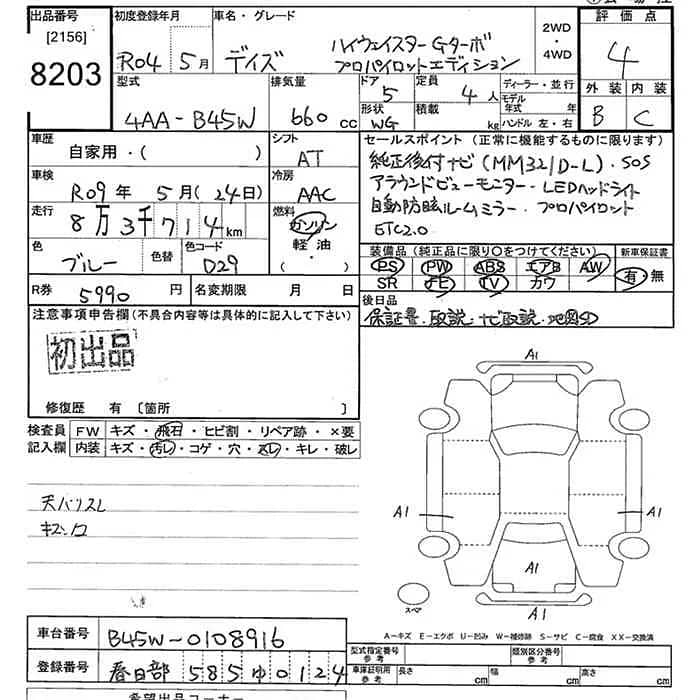 出品番号
[2156]
8203
初度登録年月
R04 5月
車名・グレード
デイズ
ハイウェイスター Gターボ
プロパイロットエディション
2WD
・
4WD
評価点
4
外装 内装
B C
型式
4AA-B45W
排気量
660 cc
ドア
5
定員
4人
形状
WG
積載
kg
ディーラー・並行
モデル年式 年
ハンドル 左・右
車歴
自家用・( )
シフト
AT
車検
R09年 5月(24日)
冷房
AAC
走行
8万3千714km
燃料
ガソリン
軽油
・
( )
色
ブルー
色替
色コード
D29
R券
5990円
名変期限 月 日
セールスポイント(正常に機能するものに限ります)
純正後付ナビ(MM321D-L)・SOS
アラウンドビューモニター・LEDヘッドライト
自動防眩ルームミラー・プロパイロット
ETC2.0
装備品(純正品に限り〇をつけてください)
新車保証書
PS PW ABS エアB AW
SR ナビ TV カワ
有・無
後日品
保証書・取説・ナビ取説・地図SD
注意事項申告欄(不具合内容等は具体的に記入して下さい)
初出品
修復歴 有 〔箇所 〕
検査員
記入欄
FW キズ・飛石・ヒビ割・リペア跡・×要
内装 キズ・汚レ・コゲ・穴・返レ・キレ・破レ
天バリスレ
キズ.ワ
A1
A1
A1
A1
A1
スペア
A-キズ E-エクボ U-凹み W-補修跡 S-サビ C-腐食 XX-交換済
車台番号
B45W-0108916
登録番号
春日部 585ゆ0124
型式指定番号
参考
類別区分番号
参考
車庫証明用
参考
長さ cm
幅 cm
高さ cm
希望出品コーナー